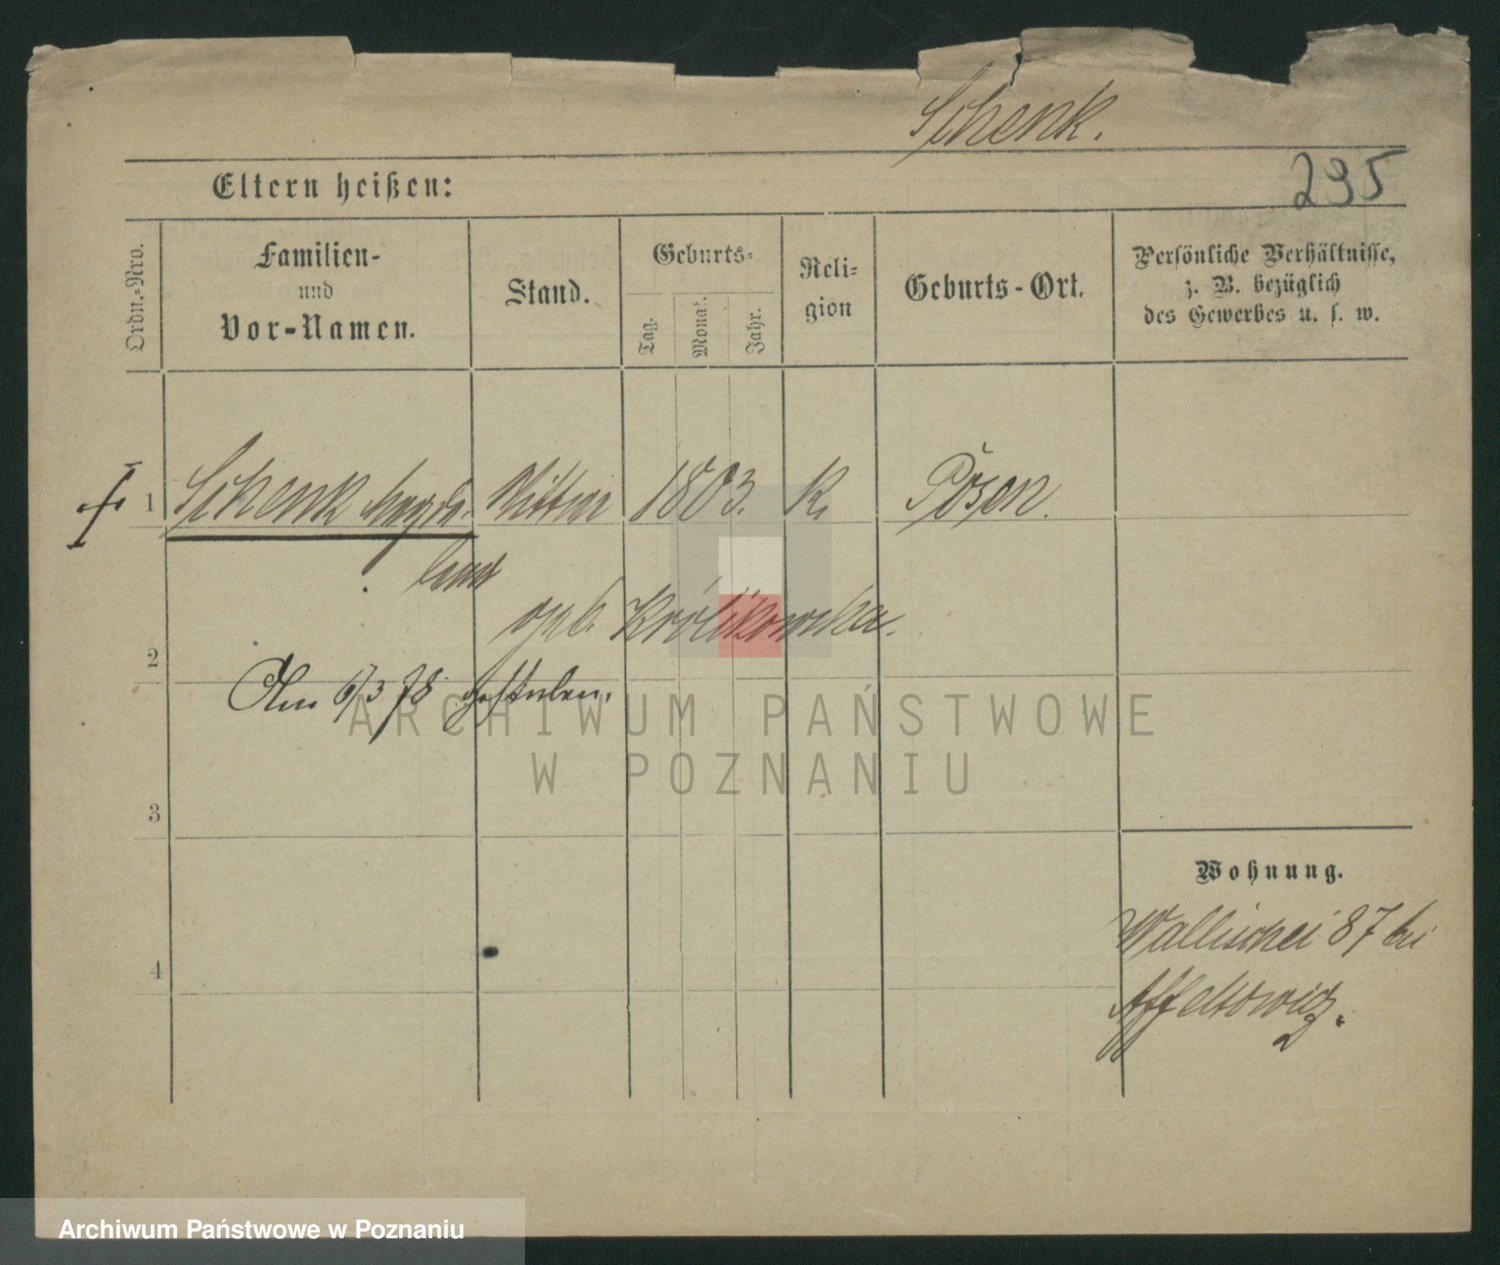 Schenk.
295
Eltern heißen:
Ordn.-Nro.
Familien-
und
Vor-Namen.
Stand.
Geburts-
Tag.
Monat.
Jahr.
Reli-
gion
Geburts-Ort.
Persönliche Verhältnisse,
z. B. bezüglich
des Gewerbes u. s. w.
1 Schenk Magda- Wittwe 1803. K. Posen.
lena
geb. Królikowska.
2
Am 6/3 78 gestorben.
ARCHIWUM PAŃSTWOWE
W POZNANIU
3
Wohnung.
Wallischei 87 bei
Affeltowicz.
4
Archiwum Państwowe w Poznaniu